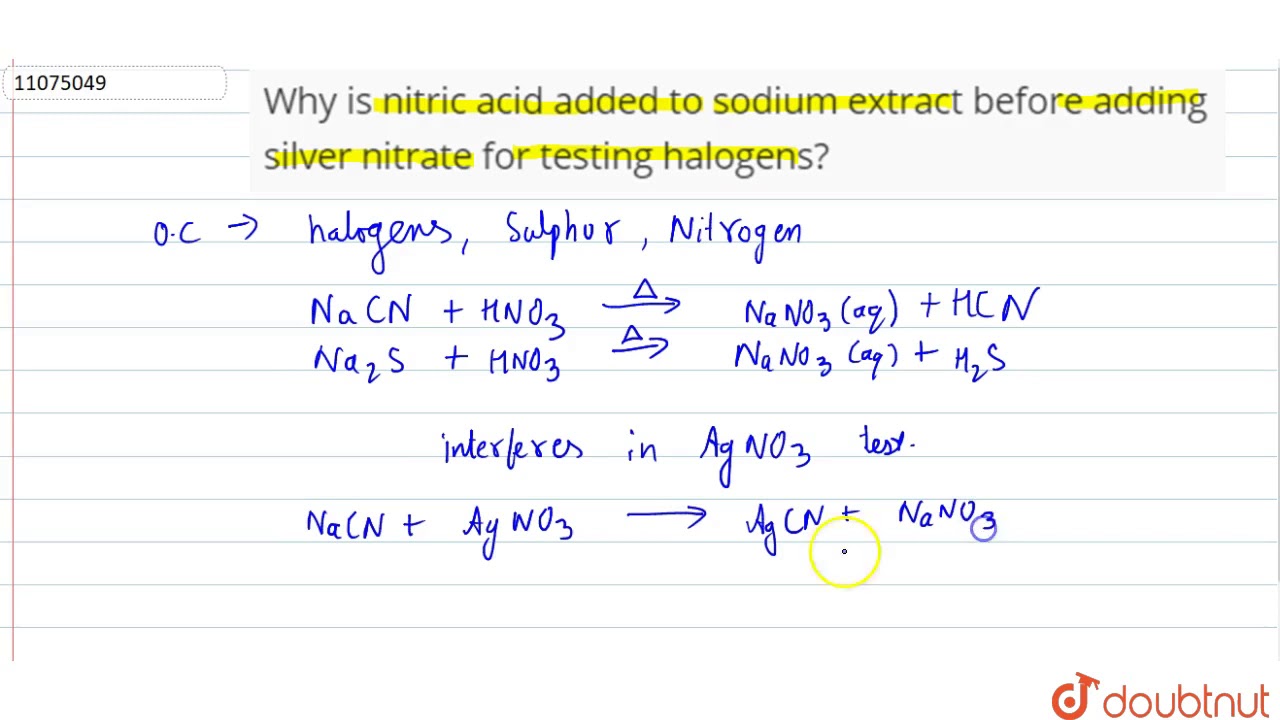 11075049
Why is nitric acid added to sodium extract before adding
silver nitrate for testing halogens?
O.C → halogens, Sulphur, Nitrogen
NaCN + HNO₃ —Δ→ NaNO₃ (aq) + HCN
Na₂S + HNO₃ —Δ→ NaNO₃ (aq) + H₂S
interferes in AgNO₃ test.
NaCN + AgNO₃ → AgCN + NaNO₃
doubtnut